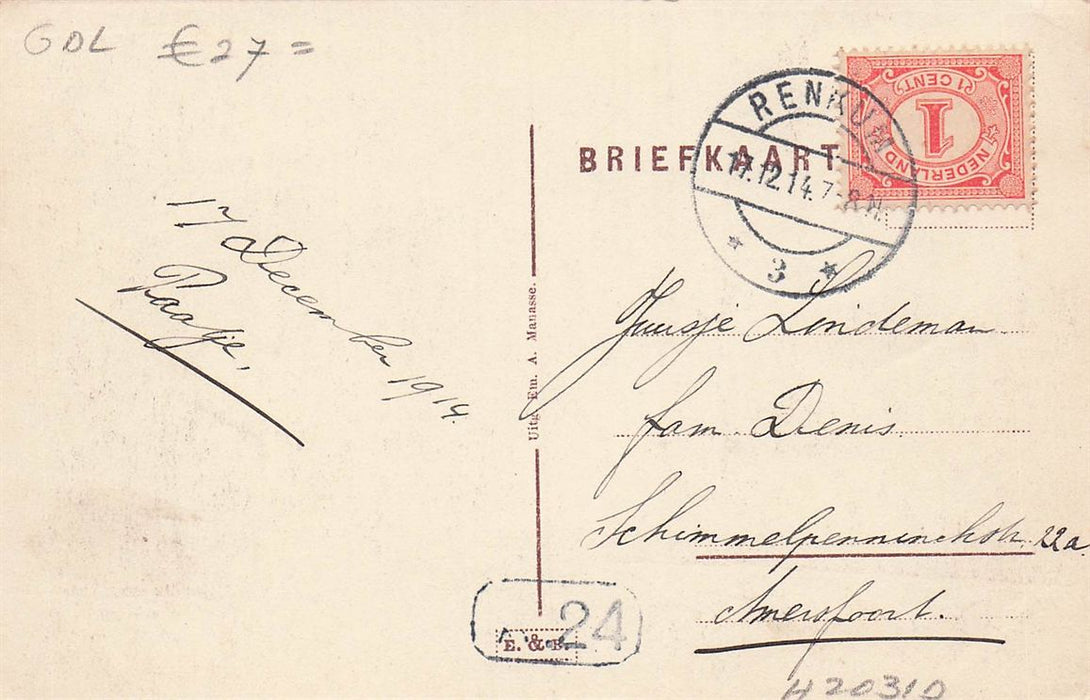 GDL €27=
BRIEFKAART
RENKUM
17.12.14.7-8.N.
* 3 *
NEDERLAND
1 CENT
1
17 December 1914.
Paatje.
Uitg. Em. A. Manasse.
Juusje Lindeman
fam. Denis.
Schimmelpenninckstr. 22a
Amersfoort.
24
E. & B.
H20310